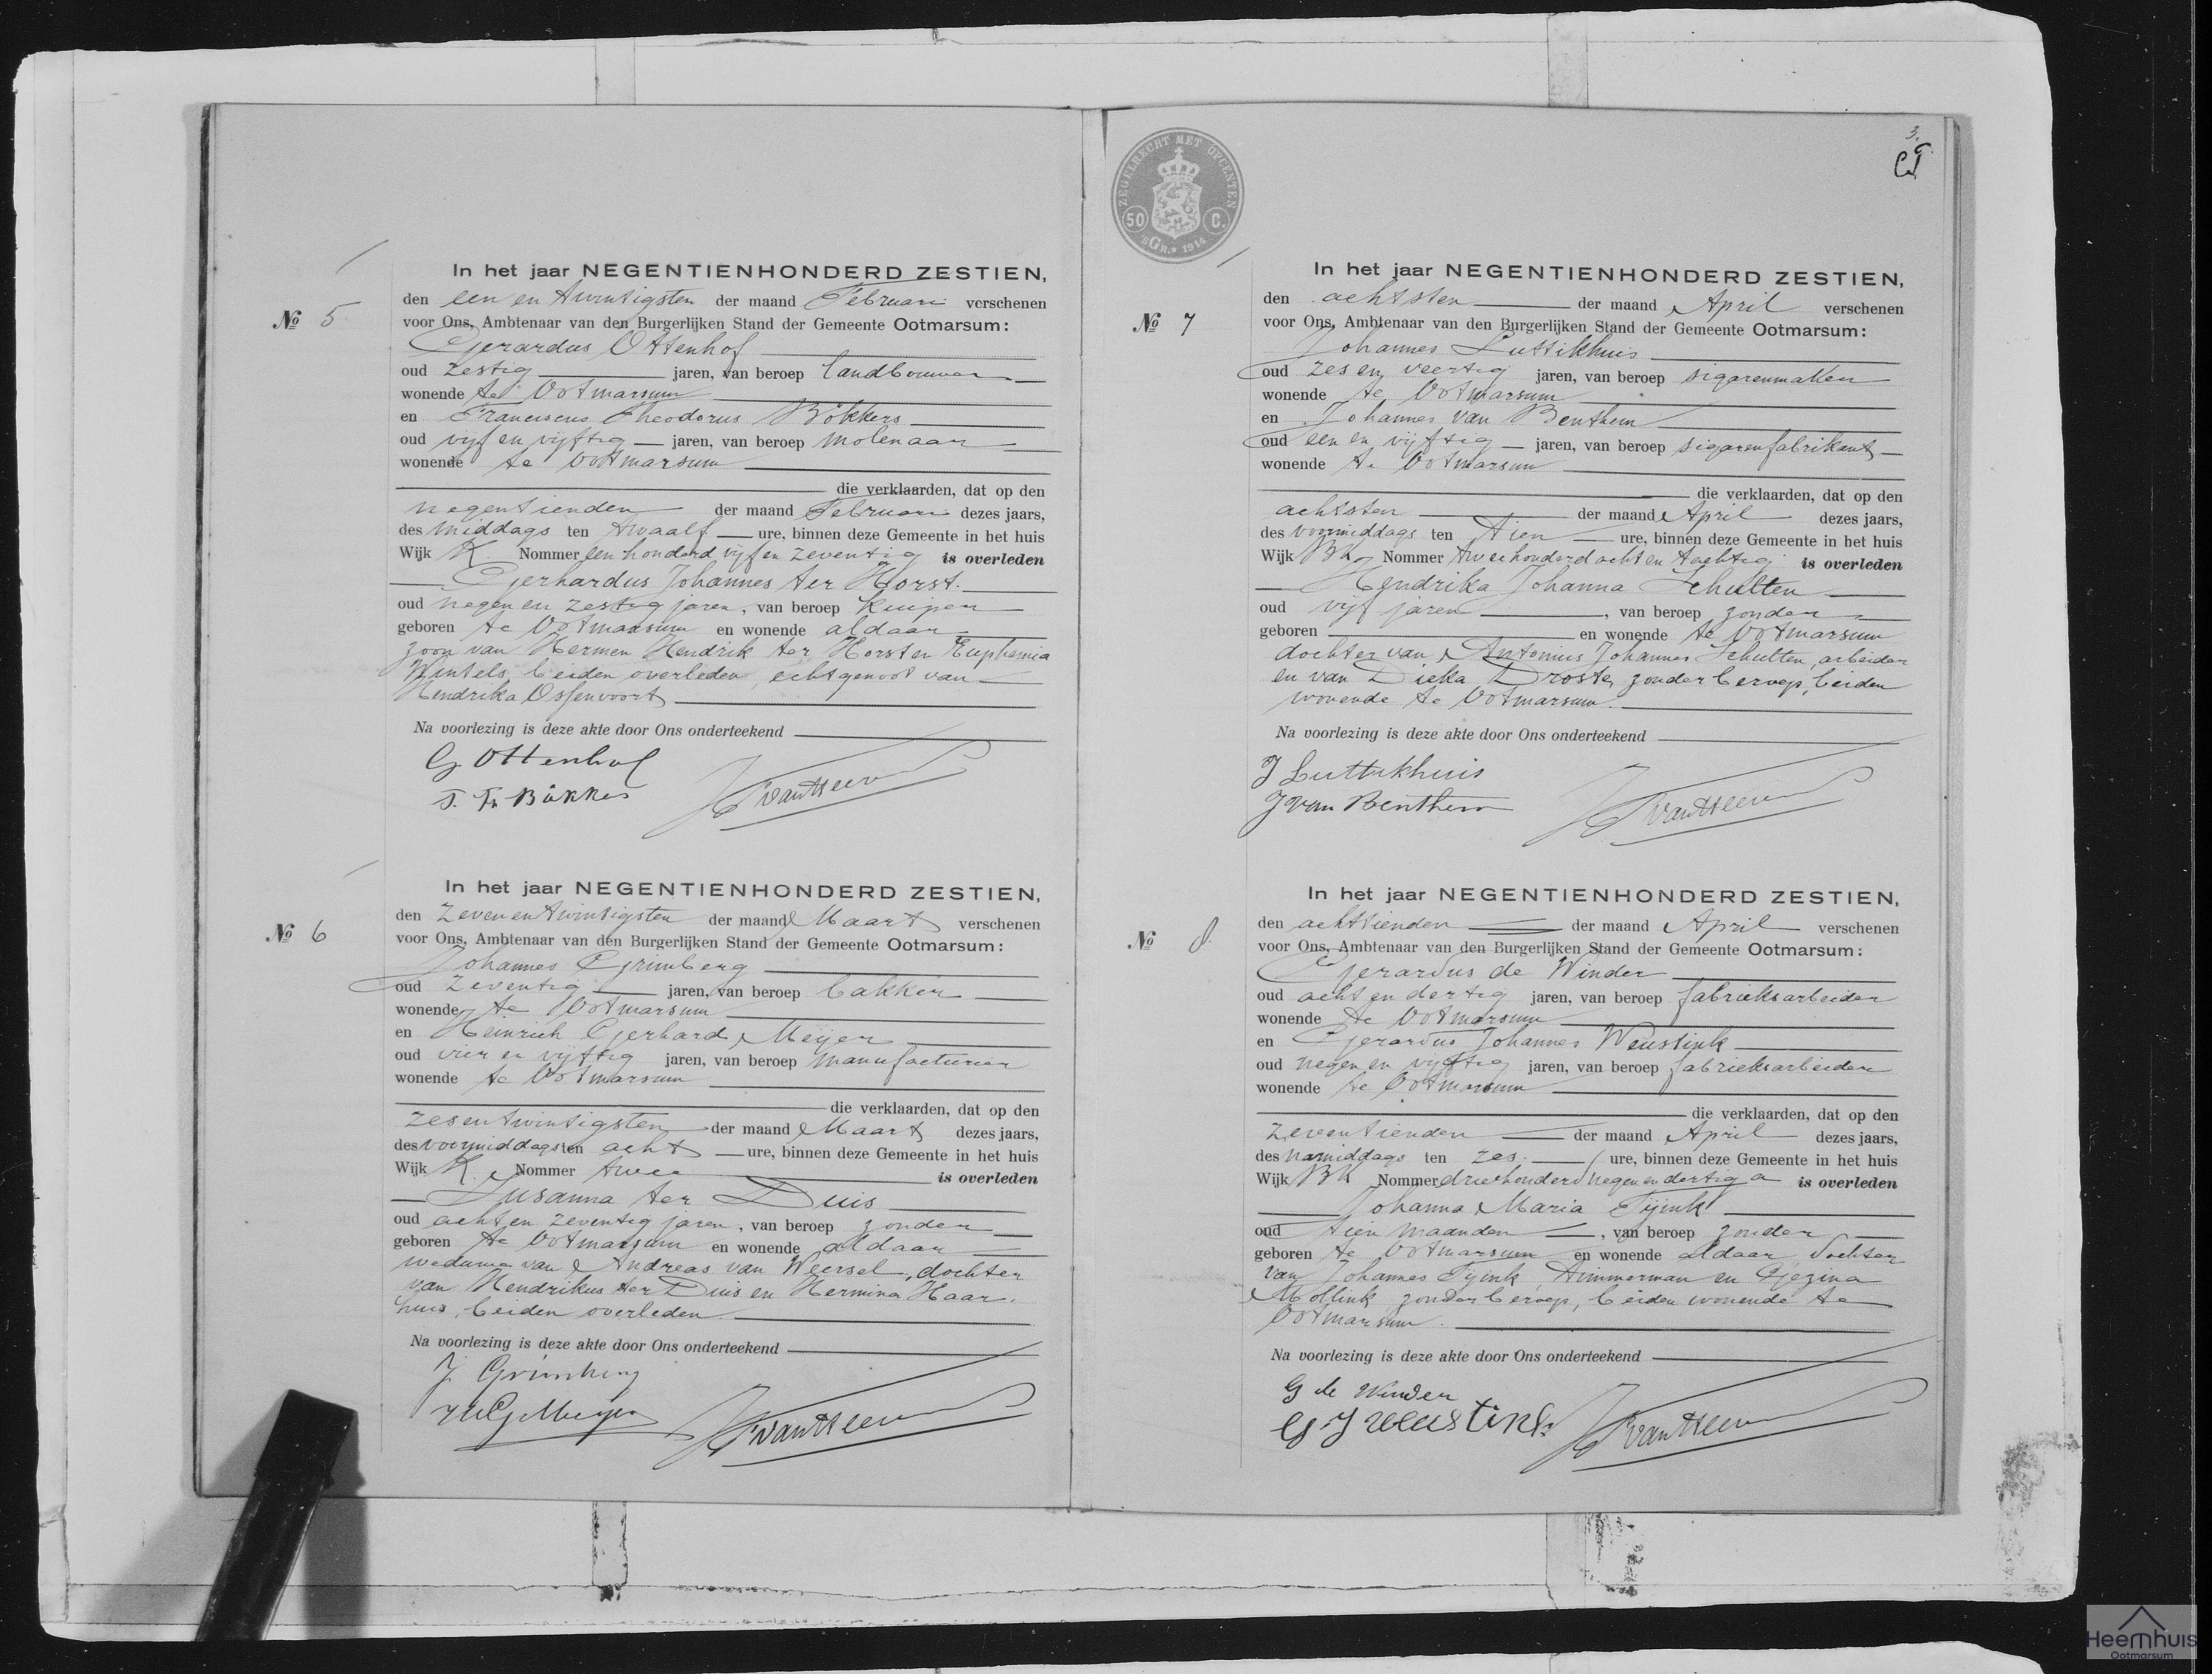 In het jaar NEGENTIENHONDERD ZESTIEN,
№ 5
den een en twintigsten der maand Februari verschenen
voor Ons, Ambtenaar van den Burgerlijken Stand der Gemeente Ootmarsum:
Gerardus Ottenhof
oud zestig jaren, van beroep landbouwer
wonende te Ootmarsum
en Franciscus Theodorus Bökkers
oud vijf en vijftig jaren, van beroep molenaar
wonende te Ootmarsum
die verklaarden, dat op den
negentienden der maand Februari dezes jaars,
des middags ten twaalf ure, binnen deze Gemeente in het huis
Wijk K. Nommer een honderd vijf en zeventig is overleden
Gerhardus Johannes ter Horst.
oud negen en zestig jaren, van beroep kuiper
geboren te Ootmarsum en wonende aldaar
zoon van Hermen Hendrik ter Horst en Euphemia
Wintels, beiden overleden, echtgenoot van
Hendrika Ossenvoort
Na voorlezing is deze akte door Ons onderteekend
G Ottenhof
F. Th Bökkers
In het jaar NEGENTIENHONDERD ZESTIEN,
№ 6
den zeven en twintigsten der maand Maart verschenen
voor Ons, Ambtenaar van den Burgerlijken Stand der Gemeente Ootmarsum:
Johannes Grimberg
oud zeventig jaren, van beroep bakker
wonende te Ootmarsum
en Heinrich Gerhard Meijer
oud vier en vijftig jaren, van beroep manufacturier
wonende te Ootmarsum
die verklaarden, dat op den
zesentwintigsten der maand Maart dezes jaars,
des voormiddags ten acht ure, binnen deze Gemeente in het huis
Wijk K. Nommer twee is overleden
Susanna ter Duis
oud acht en zeventig jaren, van beroep zonder
geboren te Ootmarsum en wonende aldaar
weduwe van Andreas van Weersel, dochter
van Hendrikus ter Duis en Hermina Haar-
huis, beiden overleden.
Na voorlezing is deze akte door Ons onderteekend
J Grimberg
H G Meijer
3.
ZEGELRECHT MET OPCENTEN
50 C.
'SGR. 1914
In het jaar NEGENTIENHONDERD ZESTIEN,
№ 7
den achtsten der maand April verschenen
voor Ons, Ambtenaar van den Burgerlijken Stand der Gemeente Ootmarsum:
Johannes Luttikhuis
oud zes en veertig jaren, van beroep sigarenmaker
wonende te Ootmarsum
en Johannes van Benthem
oud een en vijftig jaren, van beroep sigarenfabrikant
wonende te Ootmarsum
die verklaarden, dat op den
achtsten der maand April dezes jaars,
des voormiddags ten tien ure, binnen deze Gemeente in het huis
Wijk BK Nommer tweehonderd acht en tachtig is overleden
Hendrika Johanna Schulten
oud vijf jaren, van beroep zonder
geboren en wonende te Ootmarsum
dochter van Antonius Johannes Schulten, arbeider
en van Dieka Droste, zonder beroep, beiden
wonende te Ootmarsum.
Na voorlezing is deze akte door Ons onderteekend
J Luttikhuis
J van Benthem
In het jaar NEGENTIENHONDERD ZESTIEN,
№ 8.
den achttienden der maand April verschenen
voor Ons, Ambtenaar van den Burgerlijken Stand der Gemeente Ootmarsum:
Gerardus de Winder
oud acht en dertig jaren, van beroep fabrieksarbeider
wonende te Ootmarsum
en Gerardus Johannes Weustink
oud negen en vijftig jaren, van beroep fabrieksarbeider
wonende te Ootmarsum
die verklaarden, dat op den
zeventienden der maand April dezes jaars,
des namiddags ten zes. ure, binnen deze Gemeente in het huis
Wijk BK Nommer driehonderd negen en dertig a is overleden
Johanna Maria Tijink
oud tien maanden, van beroep zonder
geboren te Ootmarsum en wonende aldaar, dochter
van Johannes Tijink, timmerman en Gezina
Mollink zonder beroep, beiden wonende te
Ootmarsum.
Na voorlezing is deze akte door Ons onderteekend
G de Winder
G J Weustink
Heemhuis
Ootmarsum